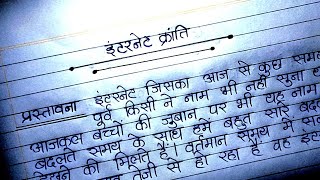 इंटरनेट क्रांति
प्रस्तावना इंटरनेट जिसका आज से कुछ समय
पूर्व किसी ने नाम भी नहीं सुना था
आजकल बच्चो की जुबान पर भी यह नाम
बदलते समय के साथ हमे बहुत सारे बदल
देखने को मिलते है। वर्तमान समय में
तेजी से हो रहा है वह